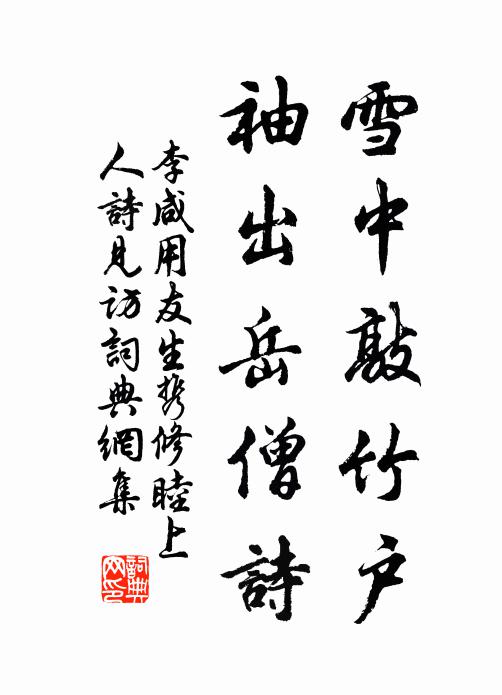 雪中敲竹户
袖出岳僧詩
李咸用友生携修睦上
人詩見访詞典網集
詞典
网印